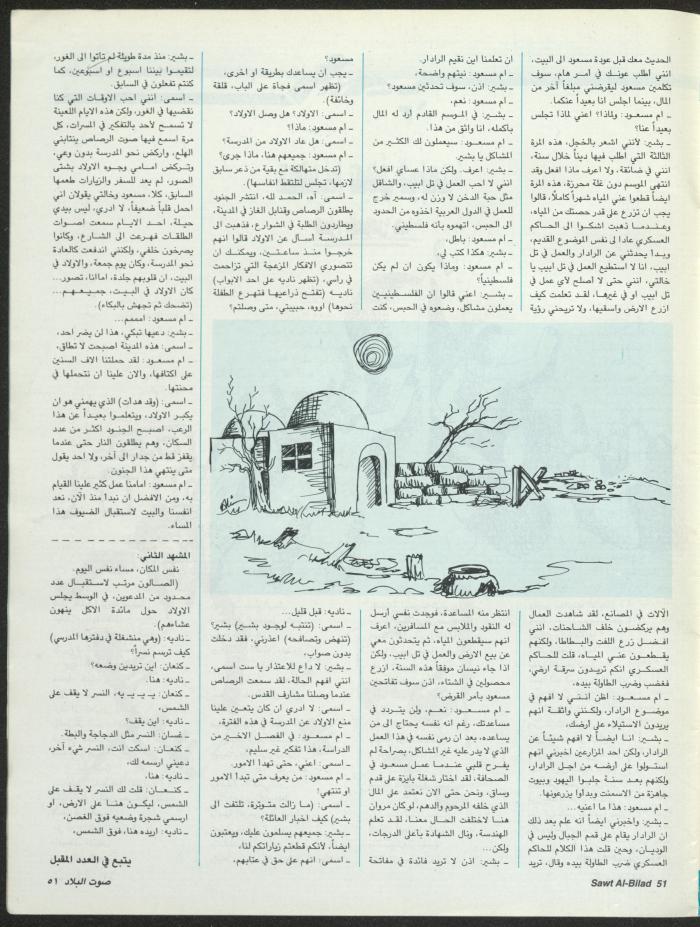 الحديث معك قبل عودة مسعود الى البيت،
انني أطلب عونك في أمر هام، سوف
تكلمين مسعود ليقرضني مبلغاً آخر من
المال، بينما اجلس انا بعيداً عنكما.
ـ ام مسعود: ولماذا؟ اعني لماذا تجلس
بعيداً عنا؟
ـ بشير: لأنني اشعر بالخجل، هذه المرة
الثالثة التي اطلب فيها ديناً خلال سنة،
انني في ضائقة، ولا اعرف ماذا افعل وقد
انتهى الموسم دون غلة محرزة، هذه المرة
ايضاً قطعوا عني المياه شهراً كاملًا، قالوا
يجب ان تزرع على قدر حصتك من المياه،
وعندما ذهبت اشكوا الى الحاكم
العسكري عادا لى نفس الموضوع القديم،
وبدا يحدثني عن الرادار والعمل في تل
ابيب، انا لا استطيع العمل في تل ابيب يا
خالتي، انني حتى لا اصلح لأي عمل في
تل ابيب او في غيرها، لقد تعلمت كيف
ازرع الارض واسقيها، ولا تريحني رؤية
الآلات في المصانع، لقد شاهدت العمال
وهم يركضون خلف الشاحنات، انني
افضل زرع اللفت والبطاطا، ولكنهم
يقطعون عني المياه، قلت للحاكم
العسكري انكم تريدون سرقة ارضي،
فغضب وضرب الطاولة بيده.
ـ ام مسعود: اظن انني لا افهم في
موضوع الرادار، ولكنني واثقة انهم
يريدون الاستيلاء على أرضك.
ـ بشير: انا ايضاً لا افهم شيئاً عن
الرادار، ولكن احد المزارعين اخبرني انهم
استولوا على أرضه من اجل الرادار،
ولكنهم بعد سنة جلبوا اليهود وبيوت
جاهزة من الاسمنت وبدأوا يزرعونها.
ـ ام مسعود: هذا ما اعنيه...
ـ بشير: واخبرني ايضاً انه علم بعد ذلك
ان الرادار يقام على قمم الجبال وليس في
الوديان، وحين قلت هذا الكلام للحاكم
العسكري ضرب الطاولة بيده وقال، تريد
ان تعلمنا اين نقيم الرادار.
ـ ام مسعود: نيتهم واضحة،
ـ بشير: اذن، سوف تحدثين مسعود؟
ـ ام مسعود: نعم،
ـ بشير: في الموسم القادم أرد له المال
باكمله، انا واثق من هذا.
ـ ام مسعود: سيعملون لك الكثير من
المشاكل يا بشير.
ـ بشير: اعرف. ولكن ماذا عساي افعل؟
انني لا احب العمل في تل ابيب، والشاقل
مثل حبة الدخن لا وزن له، وسمير خرج
للعمل في الدول العربية اخذوه من الحدود
الى الحبس، اتهموه بأنه فلسطيني.
ـ ام مسعود: باطل.
ـ بشير: هكذا كتب لي،
ـ ام مسعود: وماذا يكون ان لم يكن
فلسطينياً؟
ـ بشير: اعني قالوا ان الفلسطينيين
يعملون مشاكل، وضعوه في الحبس، كنت
انتظر منه المساعدة، فوجدت نفسي أرسل
له النقود والملابس مع المسافرين، اعرف
انهم سيقطعون المياه، ثم يتحدثون معي
عن بيع الارض والعمل في تل ابيب، ولكن
اذا جاء نيسان موفقاً هذه السنة، ازرع
محصولين في الشتاء، اذن سوف تفاتحين
مسعود بأمر القرض؟
ـ ام مسعود: نعم، ولن يتردد في
مساعدتك، رغم انه نفسه يحتاج الى من
يساعده، بعد ان رمى نفسه في هذا العمل
الذي لا يدر عليه غير المشاكل، بصراحة لم
يفرح قلبي عندما عمل مسعود في
الصحافة، لقد اختار شغلة بايزة على قدم
وساق، ونحن حتى الان نعتمد على المال
الذي خلفه المرحوم والدهم، لو كان مروان
هنا لاختلفت الحال معنا، لقد تعلم
الهندسة، ونال الشهادة بأعلى الدرجات،
ولكن...
ـ بشير: اذن لا تريد فائدة في مفاتحة
مسعود؟
ـ يجب ان يساعدك بطريقة او اخرى،
(تظهر اسمى فجأة على الباب، قلقة
وخائفة).
ـ اسمى: الاولاد؟ هل وصل الاولاد؟
ـ ام مسعود: ماذا؟
ـ اسمى: هل عاد الاولاد من المدرسة؟
ـ ام مسعود: جميعهم هنا، ماذا جرى؟
(تدخل متهالكة مع بقية من ذعر سابق
لازمها، تجلس لتلتقط انفاسها).
ـ اسمى: آه، الحمد لله، انتشر الجنود
يطلقون الرصاص وقنابل الغاز في المدينة،
ويطاردون الطلبة في الشوارع، فذهبت الى
المدرسة اسأل عن الاولاد قالوا انهم
خرجوا منذ ساعتين، ويمكنك ان
تتصوري الافكار المزعجة التي تزاحمت
في رأسي، (تظهر ناديه على احد الابواب)
ناديه (تفتح ذراعيها فتهرع الطفلة
نحوها) اووه، حبيبتي، متى وصلتم؟
ـ ناديه: قبل قليل...
ـ اسمى: (تنتبه لوجود بشير) بشير؟
(تنهض وتصافحه) اعذرني، فقد دخلت
بدون صواب،
ـ بشير: لا داع للاعتذار يا ست اسمى،
انني افهم الحالة، لقد سمعت الرصاص
عندما وصلنا مشارف القدس.
ـ اسمى: لا ادري ان كان يتعين علينا
منع الاولاد عن المدرسة في هذه الفترة،
ـ ام مسعود: في الفصل الاخير من
الدراسة، هذا تفكير غير سليم،
ـ اسمى: اعني، حتى تهدأ الامور.
ـ ام مسعود: من يعرف متى تبدا الامور
او تنتهي!
ـ اسمى: (ما زالت متوترة، تلتفت الى
بشير) كيف اخبار العائلة؟
ـ بشير: جميعهم يسلمون عليك، ويعتبون
ايضاً، لأنكم قطعتم زياراتكم لنا،
ـ اسمى: انهم على حق في عتابهم،
ـ بشير: منذ مدة طويلة لم تأتوا الى الغور،
لتقيموا بيننا اسبوع او اسبوعين، كما
كنتم تفعلون في السابق.
ـ اسمى: انني احب الاوقات التي كنا
نقضيها في الغور، ولكن هذه الايام اللعينة
لا تسمح لأحد بالتفكير في المسرات، كل
مرة اسمع فيها صوت الرصاص ينتابني
الهلع، واركض نحو المدرسة بدون وعي،
وتركض امامي وجوه الاولاد بشتى
الصور، لم يعد للسفر والزيارات طعمها
السابق، كلا، مسعود وخالتي يقولان اني
احمل قلباً ضعيفاً، لا ادري، ليس بيدي
حيلة، احد الايام سمعت اصوات
الطلقات فهرعت الى الشارع، وكانوا
يصرخون خلفي، ولكنني اندفعت كالعادة
نحو المدرسة، وكان يوم جمعة، والاولاد في
البيت، ان قلوبهم جلدة، اما انا، تصور...
كان الاولاد في البيت، جميعهم...
(تضحك ثم تجهش بالبكاء).
ـ ام مسعود: امممم...
ـ بشير: دعيها تبكي، هذا لن يضر احد،
ـ اسمى: هذه المدينة اصبحت لا تطاق،
ـ ام مسعود: لقد حملتنا الاف السنين
على اكتافها، والان علينا ان نتحملها في
محنتها.
ـ اسمى: (وقد هدأت) الذي يهمني هو ان
يكبر الاولاد، ويتعلموا بعيداً عن هذا
الرعب، اصبح الجنود اكثر من عدد
السكان، وهم يطلقون النار حتى عندما
يقفز قط من جدار الى آخر، ولا احد يقول
متى ينتهي هذا الجنون.
ـ ام مسعود: امامنا عمل كثير علينا القيام
به، ومن الافضل ان نبدأ منذ الآن، نعد
انفسنا والبيت لاستقبال الضيوف هذا
المساء.
المشهد الثاني:
نفس المكان، مساء نفس اليوم.
(الصالون مرتب لاستقبال عدد
محدود من المدعوين، في الوسط يجلس
الاولاد حول مائدة الاكل ينهون
عشاءهم).
ـ ناديه: (وهي منشغلة في دفترها المدرسي)
كيف ترسم نسراً؟
ـ كنعان: اين تريدين وضعه؟
ـ ناديه: هنا.
ـ كنعان: يـ يـ يـ يه، النسر لا يقف على
الشمس،
ـ ناديه: اين يقف؟
ـ غسان: النسر مثل الدجاجة والبطة.
ـ كنعان: اسكت انت، النسر شيء آخر،
دعيني ارسمه لك،
ـ ناديه: هنا،
ـ كنعان: قلت لك النسر لا يقف على
الشمس، ليكون هنا على الارض، او
ارسمي شجرة وضعيه فوق الغصن،
ـ ناديه: اريده هنا، فوق الشمس،
يتبع في العدد المقبل
Sawt Al-Bilad 51
صوت البلاد ٥١